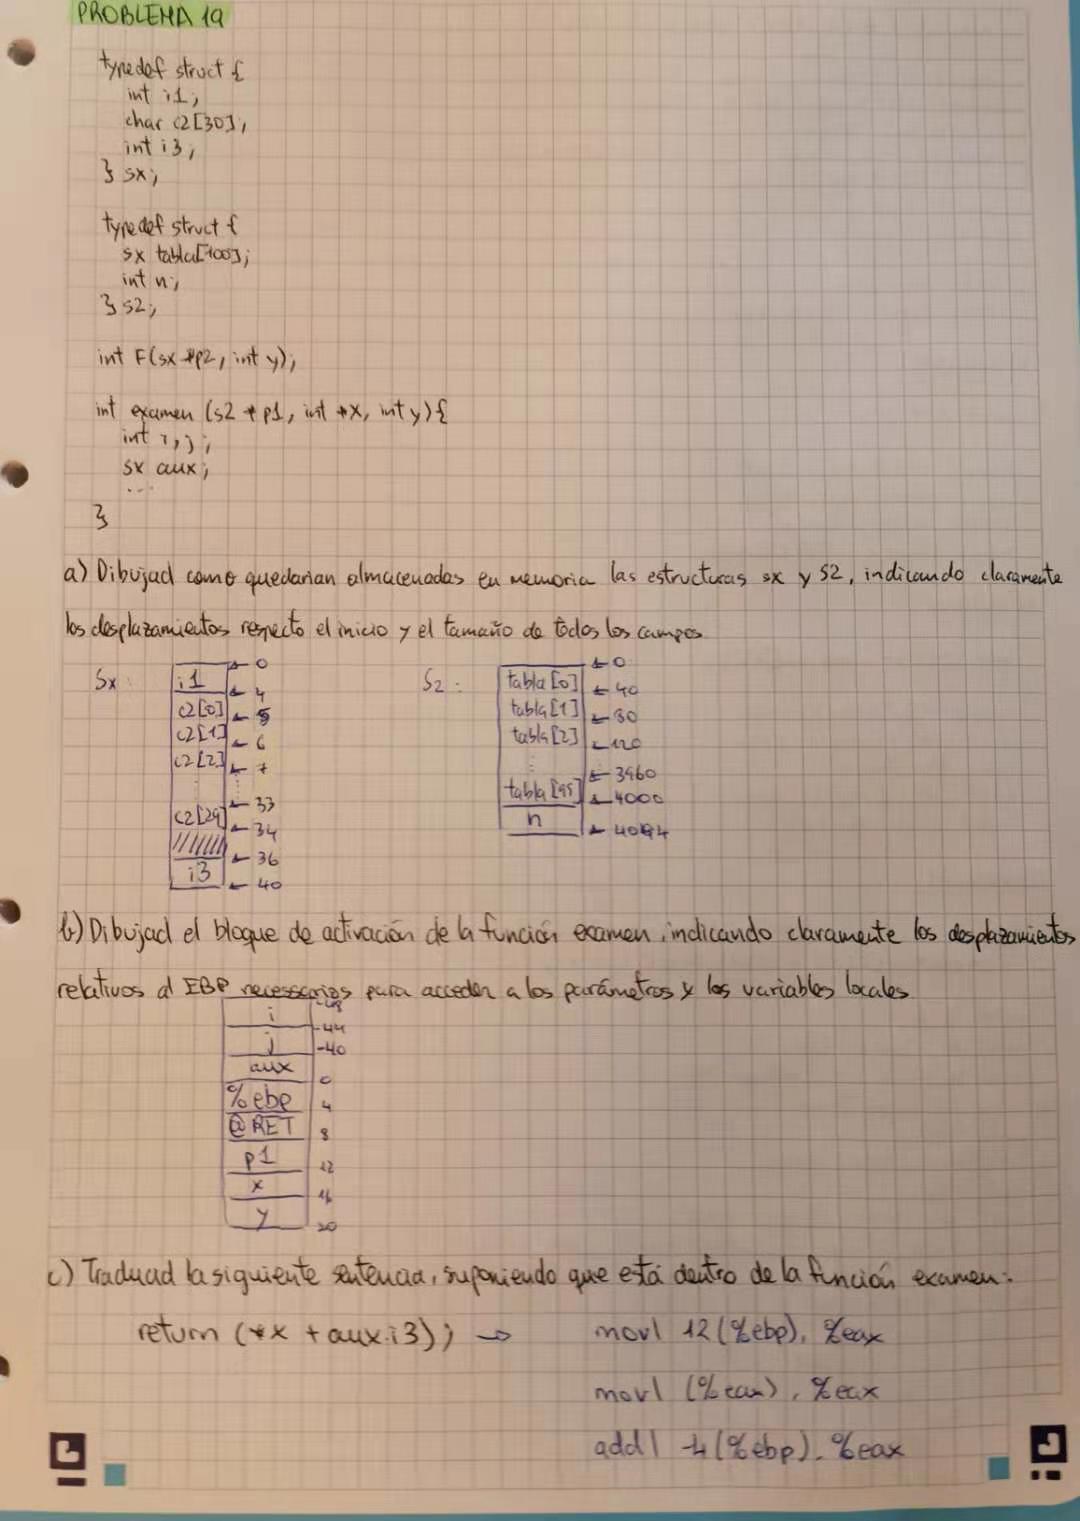 PROBLEMA 19
typedef struct {
int i1;
char c2[30];
int i3;
} sx;
typedef struct {
sx tabla[100];
int n;
} s2;
int F(sx *p2, int y);
int examen (s2 * p1, int *x, int y) {
int i, j;
sx aux;
...
}
a) Dibujad como quedarian almacenadas en memoria las estructuras sx y s2, indicando claramente
los desplazamientos respecto el inicio y el tamaño de todos los campos
Sx:
0
i1
4
c2[0]
5
c2[1]
6
c2[2]
7
33
c2[29]
34
36
i3
40
S2:
0
tabla[0]
40
tabla[1]
80
tabla[2]
120
3960
tabla[99]
4000
n
b) Dibujad el bloque de activación de la función examen, indicando claramente los desplazamientos
relativos al EBP necesarios para acceder a los parámetros y las variables locales
-48
i
-44
j
-40
aux
0
%ebp
4
@RET
8
p1
12
x
16
y
20
c) Traducid la siguiente sentencia, suponiendo que está dentro de la función examen:
return (*x + aux.i3); → movl 12(%ebp), %eax
movl (%eax), %eax
addl -4(%ebp), %eax